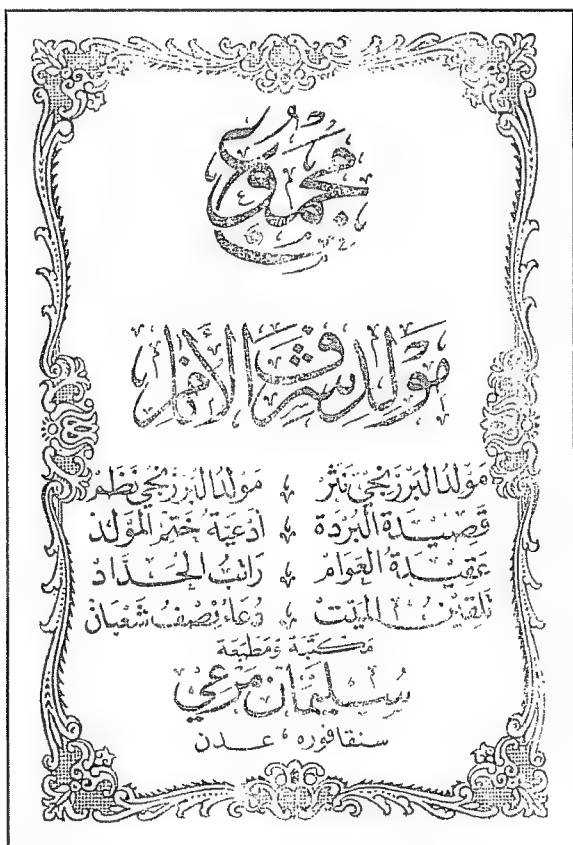 مجموع
مولد شرف الأنام
مولد البرزنجي نثر ، مولد البرزنجي نظم
قصيدة البردة ، أدعية ختم المولد
عقيدة العوام ، راتب الحداد
تلقين الميت ، دعاء نصف شعبان
مكتبة ومطبعة
سليمان مرعي
سنقافوره ، عدن